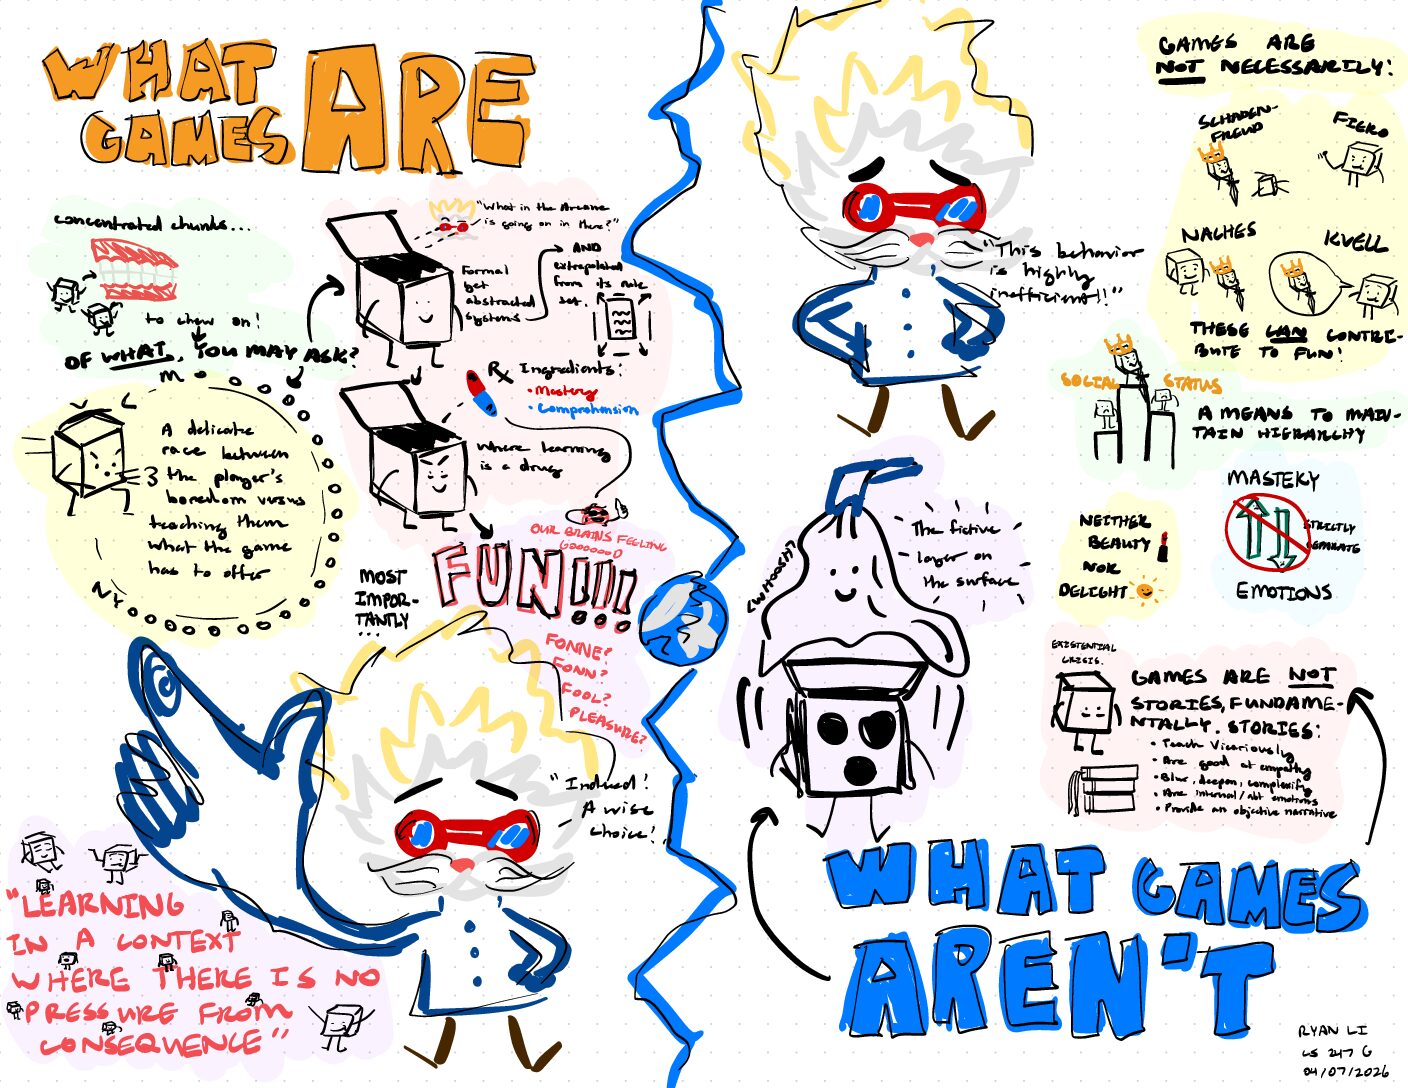 WHAT
GAMES
ARE
concentrated chunks...
to chew on!
OF WHAT, YOU MAY ASK?
"What in the Arcane
is going on in there?"
Formal
yet
abstracted
systems
AND
extrapolated
from its rule
set.
Rx Ingredients:
• Mastery
• Comprehension
Where learning
is a drug
OUR BRAINS FEELING
GOOOOOOD
A delicate
race between
the player's
boredom versus
teaching them
what the game
has to offer
MOST
IMPOR-
TANTLY
...
FUN!!!
FONNE?
FONN?
FOOL?
PLEASURE?
"Indeed!
A wise
choice!"
"LEARNING
IN A CONTEXT
WHERE THERE IS NO
PRESSURE FROM
CONSEQUENCE"
"This behavior
is highly
inefficient!!"
GAMES ARE
NOT NECESSARILY:
SCHADEN-
FREUD
FIERO
NACHES
KVELL
THESE CAN CONTRI-
BUTE TO FUN!
SOCIAL STATUS
A MEANS TO MAIN-
TAIN HIERARCHY
NEITHER
BEAUTY
NOR
DELIGHT
MASTERY
STRICTLY
SEPARATE
EMOTIONS
<WHOOSH>
The fictive
layer on
the surface
EXISTENTIAL
CRISIS.
GAMES ARE NOT
STORIES, FUNDAME-
NTALLY. STORIES:
• Teach Vicariously
• Are good at empathy
• Blur, deepen, complexify
• Are internal/abt emotions
• Provide an objective narrative
WHAT GAMES
AREN'T
RYAN LI
CS 247 G
04/07/2026